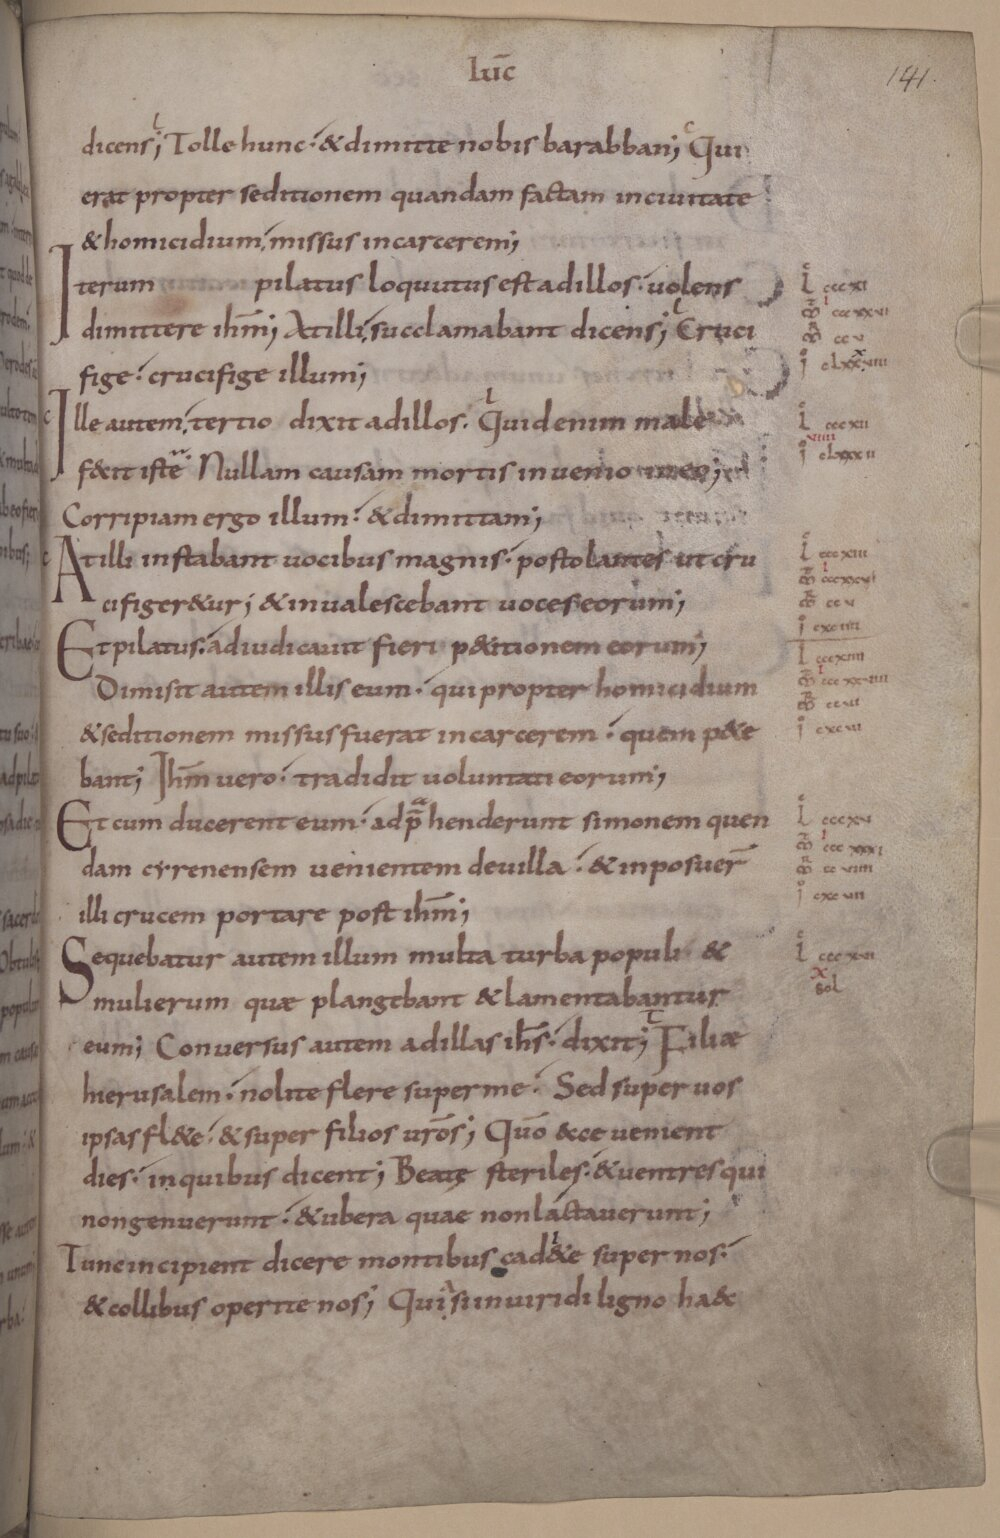 luc̄
141.
dicens; Tolle hunc. & dimitte nobis barabban; Qui
erat propter seditionem quandam factam in ciuitate
& homicidium. missus in carcerem;
Iterum pilatus loquutus est ad illos. uolens
dimittere ihm̄; At illi succlamabant dicens; Cruci
fige. crucifige illum;
Ille autem. tertio dixit ad illos. Quid enim male
fecit iste Nullam causam mortis inuenio in eo;
Corripiam ergo illum. & dimittam;
At illi instabant uocibus magnis. postolantes ut cru
cifiger&ur; & inualescebant uoces eorum;
Et pilatus. adiudicauit fieri p&itionem eorum;
Dimisit autem illis eum. qui propter homicidium
& seditionem missus fuerat in carcerem. quem p&e
bant; Ihm̄ uero. tradidit uoluntati eorum;
Et cum ducerent eum. adp̄henderunt simonem quen
dam cyrenensem uenientem de uilla. & inposuer̄
illi crucem portare post ihm̄;
Sequebatur autem illum multa turba populi &
mulierum quæ plangebant & lamentabantur
eum; Conuersus autem ad illas ihs̄. dixit; Filiæ
hierusalem. nolite flere super me. Sed super uos
ipsas fl&e. & super filios uros̄; Quō ecce uenient
dies. in quibus dicent; Beatę steriles. & uentres qui
non genuerunt. & ubera quae non lactauerunt;
Tunc incipient dicere montibus cad&e super nos.
& collibus operite nos; Quia si in uiridi ligno haec
l cccxi
l cccxii
l cccxiii
l cccxiiii
l cccxv
l cccxvi
sol